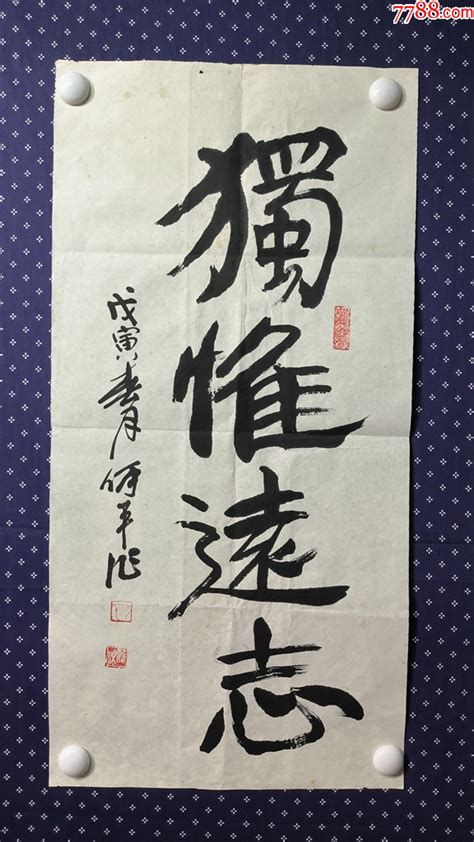 7788.com
獨惟遠志
戊寅春月何平作